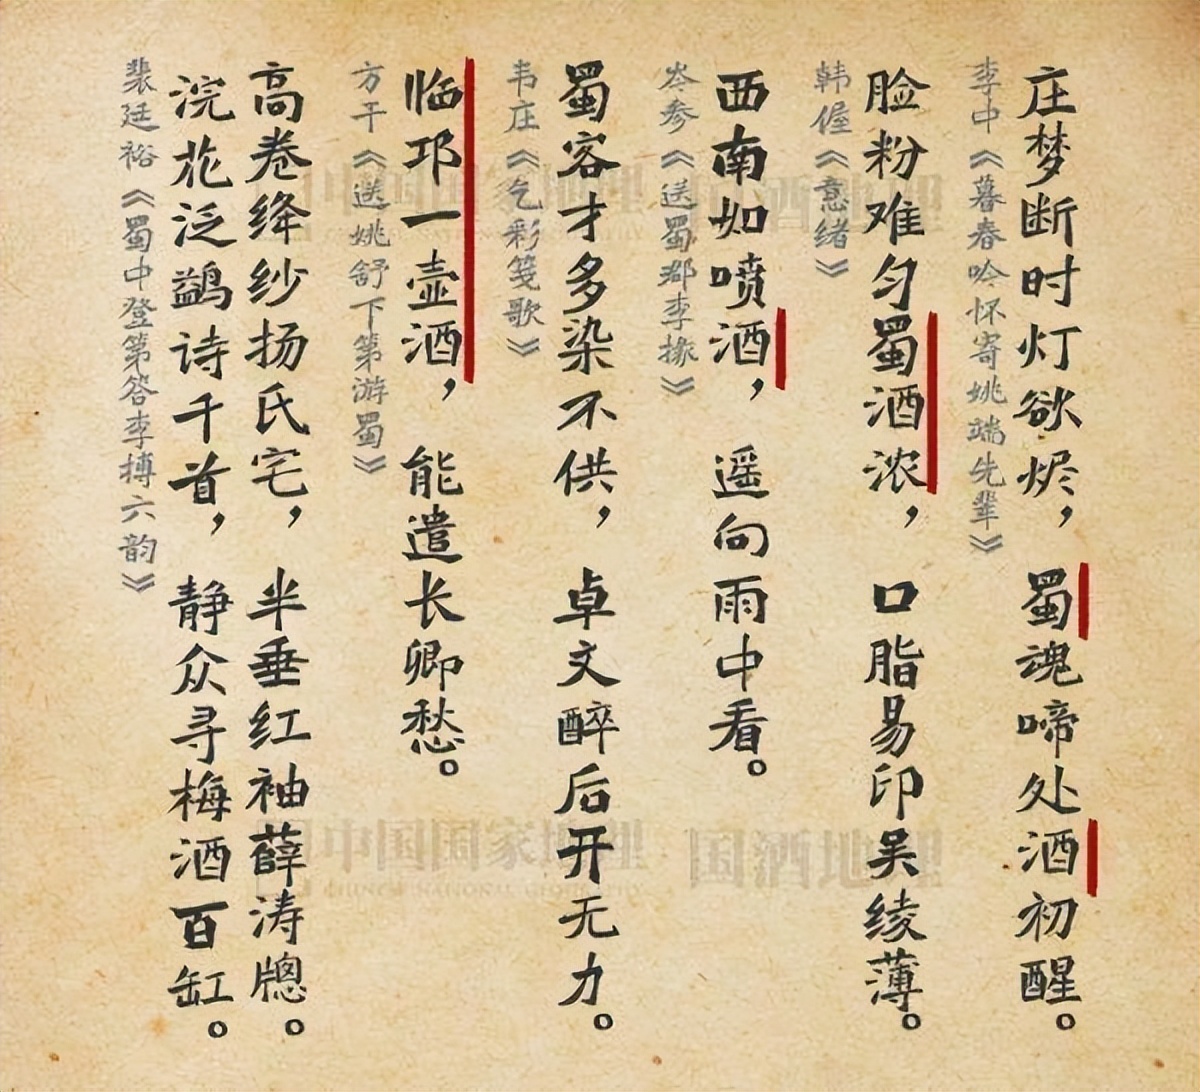 庄梦断时灯欲烬，蜀魂啼处酒初醒。
李中《暮春吟怀寄姚端先辈》
脸粉难匀蜀酒浓，口脂易印吴绫薄。
韩偓《意绪》
西南如喷酒，遥向雨中看。
岑参《送蜀郡李掾》
蜀客才多染不供，卓文醉后开无力。
韦庄《乞彩笺歌》
临邛一壶酒，能遣长卿愁。
方干《送姚舒下第游蜀》
高卷绛纱扬氏宅，半垂红袖薛涛牕。
浣花泛鹢诗千首，静众寻梅酒百缸。
裴廷裕《蜀中登第答李搏六韵》
中国国家地理
国酒地理
中国国家地理
CHINESE NATIONAL GEOGRAPHY
国酒地理